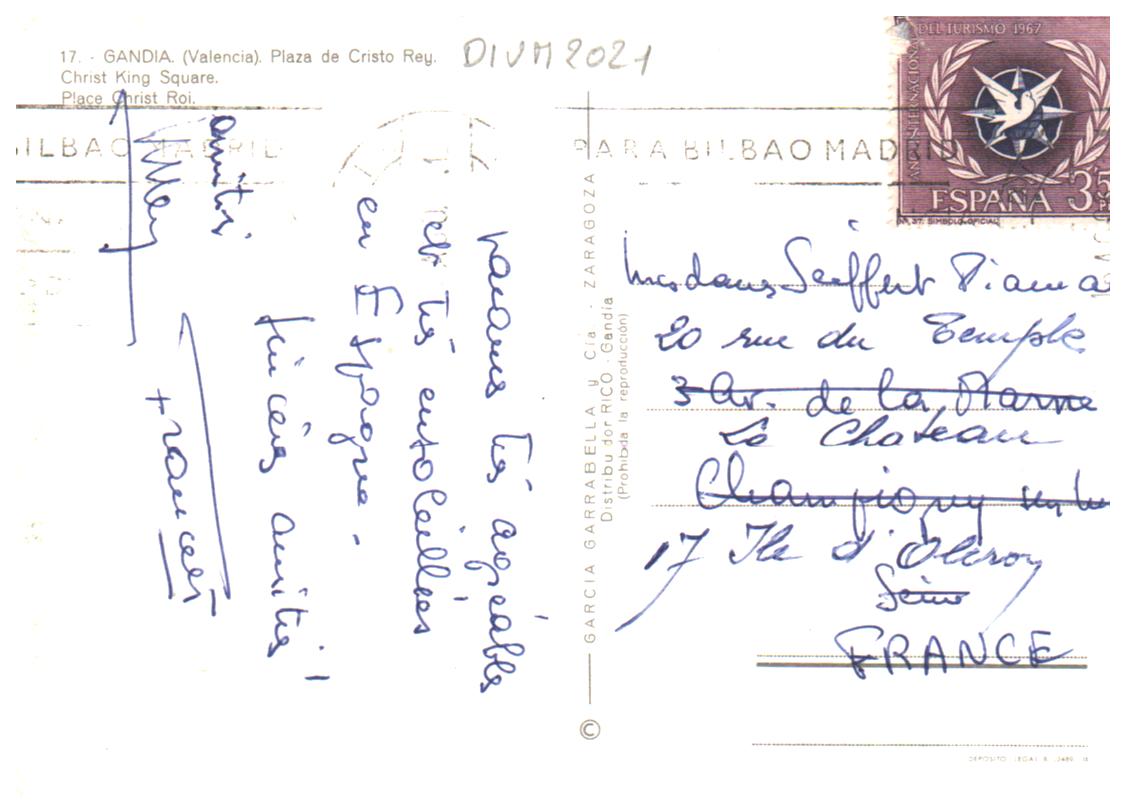 17. - GANDIA. (Valencia). Plaza de Cristo Rey.
Christ King Square.
Place Christ Roi.
DIVM2021
DEL TURISMO 1967
ESPAÑA 3'5
Nº. 37. SIMBOLO OFICIAL
ILBAO MADRID
PARA BILBAO MADRID
vacances très agréables
et très ensoleillées
en Espagne.
Sincères amitiés
Frances
amitiés
GARCIA GARRABELLA y Cía - ZARAGOZA
Distribuidor RICO - Gandia
(Prohibida la reproducción)
©
Madame Seiffert Diana
20 rue du Temple
3 Av. de la Marne
Le Chateau
Champigny sur
17 Ile d'Oleron
Seine
FRANCE